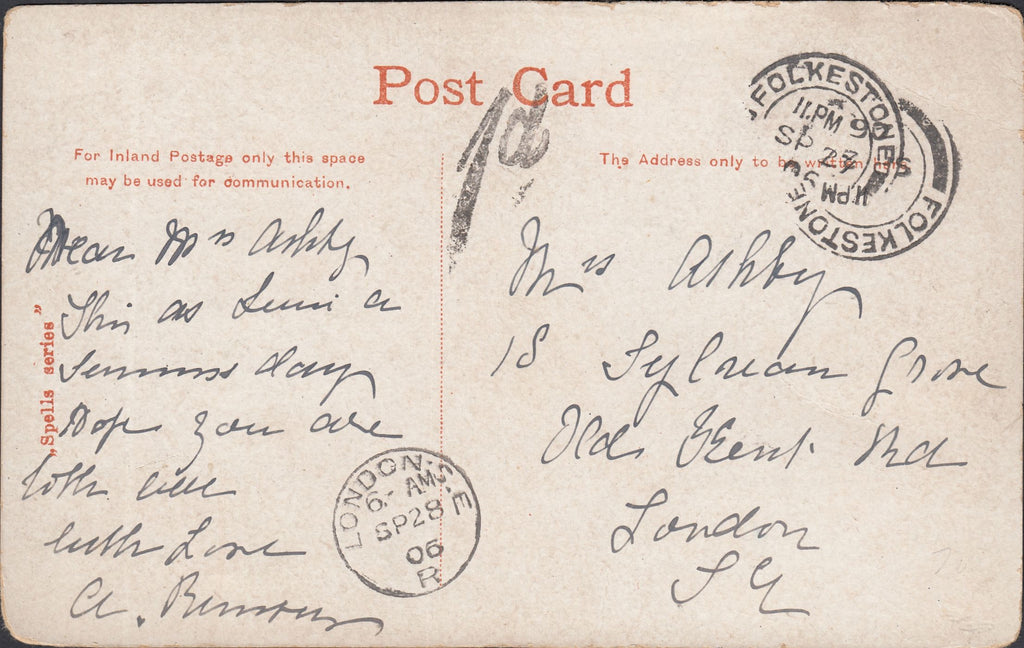 Post Card
1d
For Inland Postage only this space
may be used for communication.
The Address only to be written here
FOLKESTONE
11.PM
SP 27
06
FOLKESTONE
11.PM
Dear Mrs Ashby
This as a
day
Hope you are
both
with Love
A.
„Spells series”
Mrs Ashby
18 Sylvan Grove
Old Kent Rd
London
S E
LONDON.S.E
6.- AM
SP 28
06
R